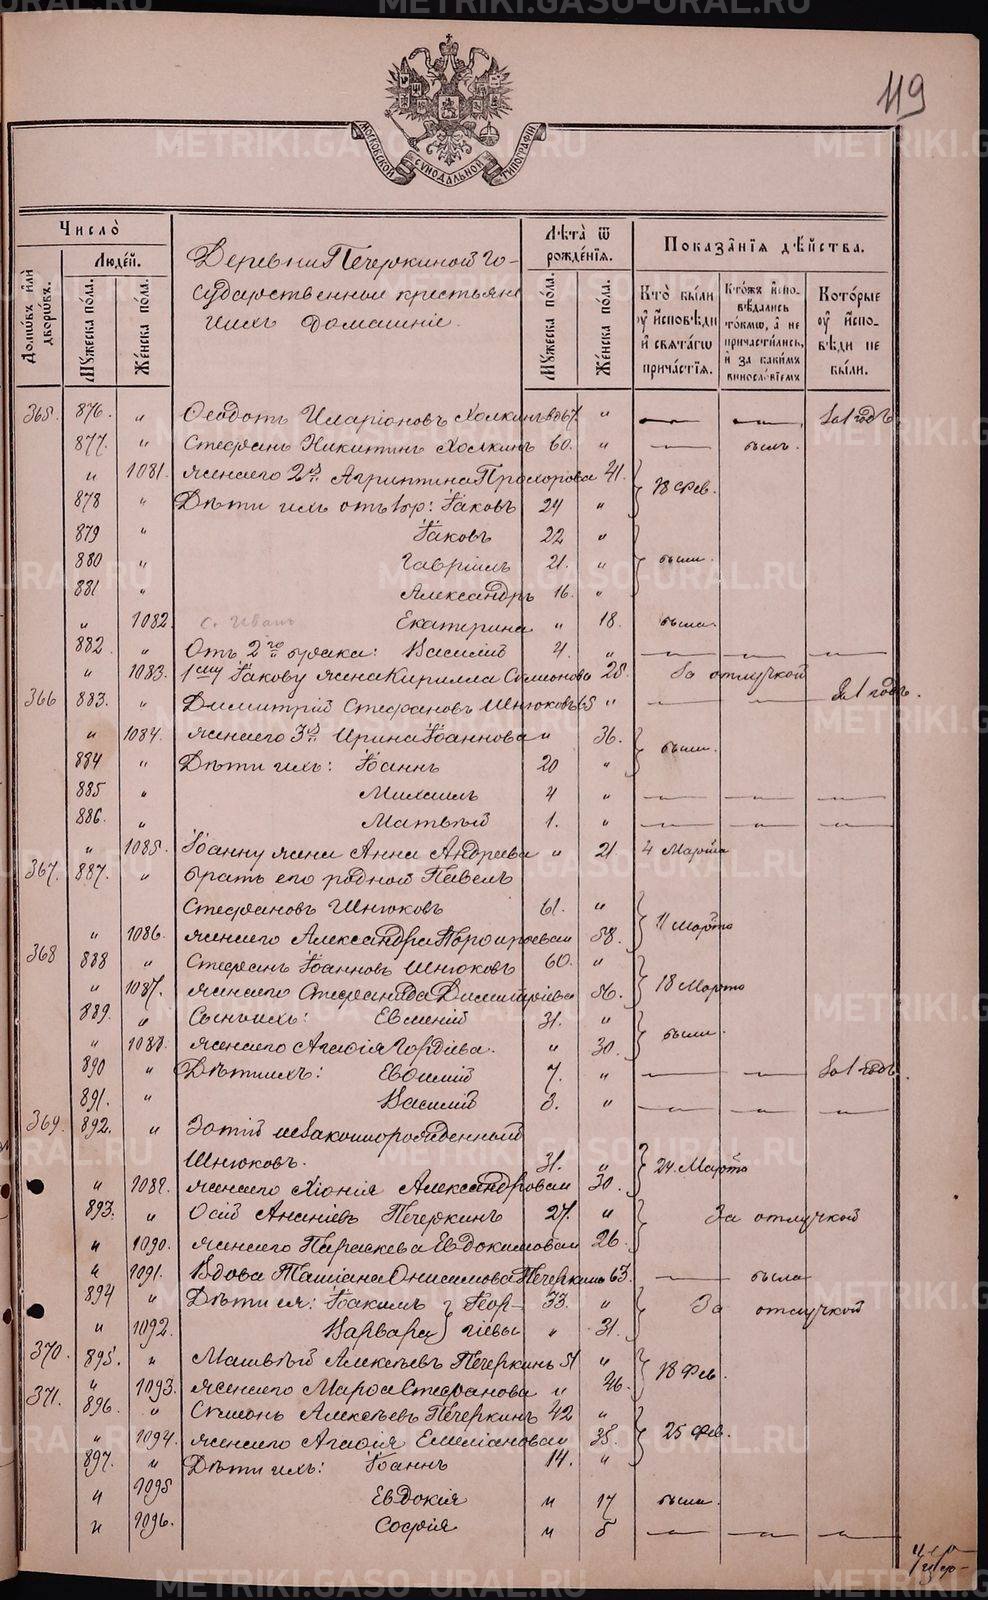 119
МОСКОВСКОЙ СѴНОДАЛЬНОЙ ТИПОГРАФІИ
Число̀
Домѡвъ илѝ дворѡвъ.
Людей.
Мꙋжеска по́ла.
Же́нска по́ла.
Деревни Печеркиной го-
сударственные крестьяне
ихъ домашніе.
Лѣта̀ ѿ рожде́нїѧ.
Мꙋжеска по́ла.
Же́нска по́ла.
Показа́нїѧ дѣ́йства.
Кто̀ бы́ли ᲂу҆ и҆сповѣди и҆ свѧта́гѡ прича́стїѧ.
Кто́жъ и҆спо-вѣдались то́кмѡ, а҆ не причасти́лись, и҆ за каки́мъ винословїемъ
Кото́рые ᲂу҆ и҆спо-вѣди не бы́ли.
365. 876. „ Ѳеодотъ Иларіоновъ Холкинъ 67. „ — — За 1 годъ
877. „ Стефанъ Никитинъ Холкинъ 60. „ — былъ.
„ 1081. жена его 2я Агриппина Прохорова 41. 18 Фев.
878 „ Дѣти ихъ отъ 1бр: Іаковъ 24 „
879 „ Іаковъ 22 „
880 „ Гавріилъ 21. „ были.
881 „ Александръ 16. „
„ 1082. с. Иванъ Екатерина „ 18. была
882. „ Отъ 2го брака: Василій 4. „ — — —
„ 1083. 1му Іакову жена Кирилла Симионова 28. За отлучкой
366 883. „ Димитрій Стефановъ Шнюковъ 65 „ — — За 1 годъ.
„ 1084. жена его 3я Ирина Іоаннова „ 36. были.
884 „ Дѣти ихъ: Іоаннъ 20 „
885 „ Михаилъ 4 „ — — —
886. „ Матвѣй 1. „ — — —
„ 1085. Іоанну жена Анна Андреева „ 21 4 Марта
367. 887. „ братъ его родной Павелъ
Стефановъ Шнюковъ 61. „ 11 Марта
„ 1086. жена его Александра 58.
368 888 „ Стефанъ Іоанновъ Шнюковъ 60. „ 18 Марта
„ 1087. жена его Стефанида Димитріева 56.
889. „ Сынъ ихъ: Евгеній 31. „ были
„ 1088. жена его Агафія Гордіева. „ 30.
890 „ Дѣти ихъ: Евѳимій 7. „ — — За 1 годъ.
891. „ Василій 3. „ — — —
369. 892. „ Зотій незаконнорожденный
Шнюковъ. 31. „ 24 Марта
„ 1089. жена его Хіонія Александрова 30.
893. „ Осій Ананіевъ Печеркинъ 27. „ За отлучкой
„ 1090. жена его Параскева Евдокимова 26.
„ 1091. Вдова Татіана Онисимова Печеркина 63. — была
894 „ Дѣти ея: Іоакимъ } Геор- 33. „ За отлучкой
„ 1092. Варвара } гіевы „ 31.
370. 895. „ Матвѣй Алексѣевъ Печеркинъ 51 „ 18 Фев.
„ 1093. жена его Марѳа Стефанова „ 46.
371. 896. „ Симонъ Алексѣевъ Печеркинъ 42 „ 25 Фев.
„ 1094. жена его Агафія Емеліанова 38. „
897. „ Дѣти ихъ: Іоаннъ 14. „
„ 1095 Евдокія „ 17 была.
„ 1096. Софія „ 5 — — —
METRIKI.GASO-URAL.RU